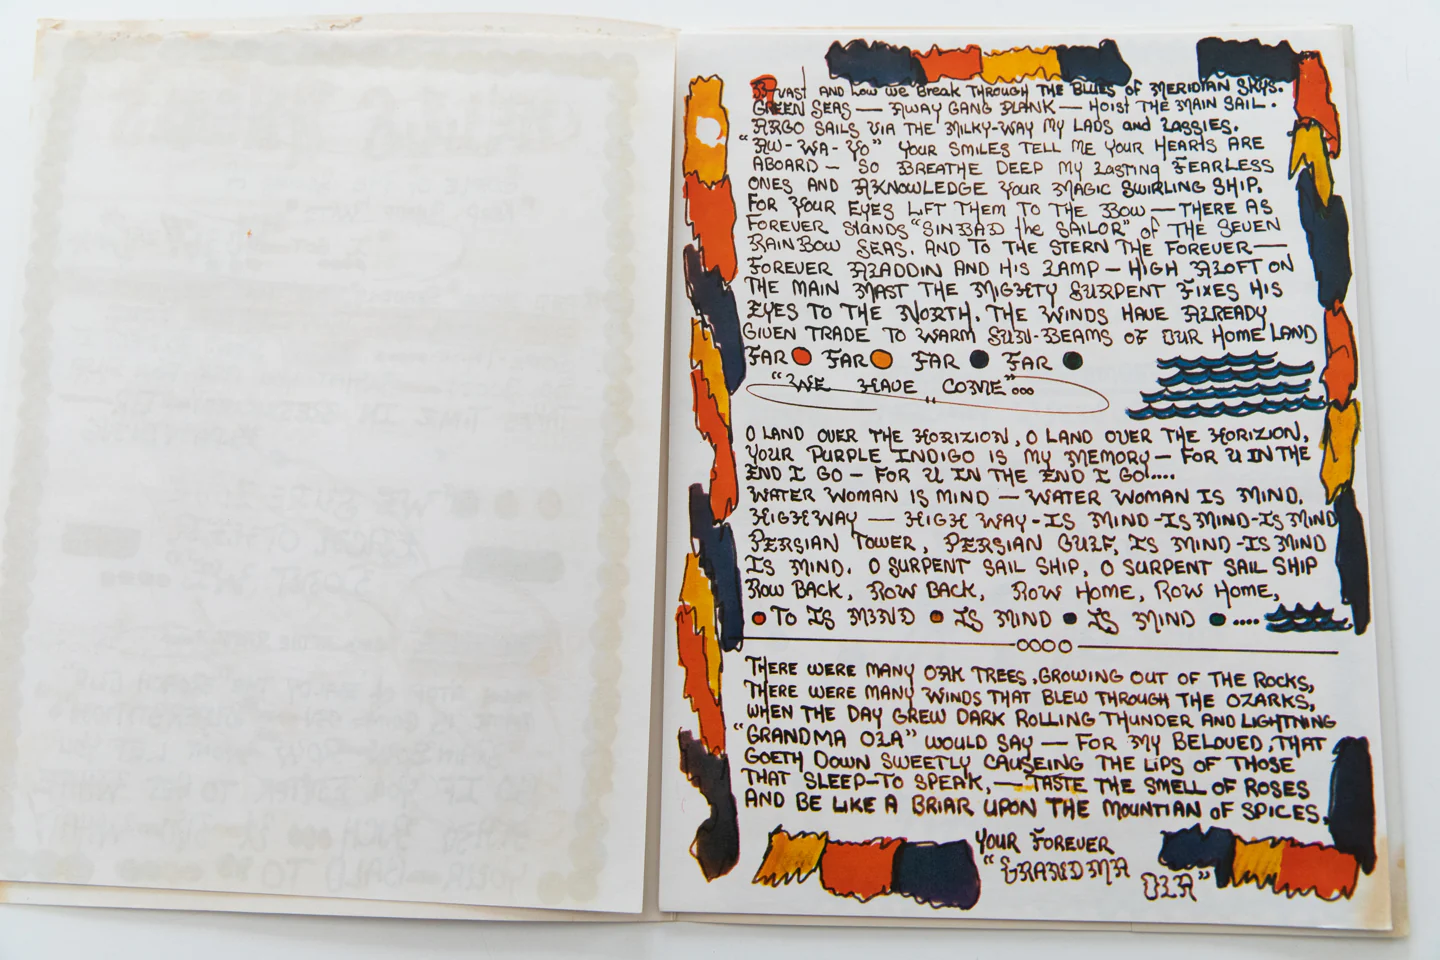 AVAST AND LOW WE BREAK THROUGH THE BLUES OF MERIDIAN SKYS.
GREEN SEAS — AWAY GANG PLANK — HOIST THE MAIN SAIL.
ARGO SAILS VIA THE MILKY-WAY MY LADS and LASSIES.
"AW-WA-YO" YOUR SMILES TELL ME YOUR HEARTS ARE
ABOARD — SO BREATHE DEEP MY LASTING FEARLESS
ONES AND AKNOWLEDGE YOUR MAGIC SWIRLING SHIP.
FOR YOUR EYES LIFT THEM TO THE BOW — THERE AS
FOREVER STANDS "SINBAD the SAILOR" of THE SEVEN
RAINBOW SEAS. AND TO THE STERN THE FOREVER —
FOREVER ALADDIN AND HIS LAMP — HIGH ALOFT ON
THE MAIN MAST THE MIGHTY SURPENT FIXES HIS
EYES TO THE NORTH. THE WINDS HAVE ALREADY
GIVEN TRADE TO WARM SUN-BEAMS OF OUR HOME LAND
FAR FAR FAR FAR
"WE HAVE COME"...
O LAND OVER THE HORIZION, O LAND OVER THE HORIZION,
YOUR PURPLE INDIGO IS MY MEMORY — FOR U IN THE
END I GO — FOR U IN THE END I GO....
WATER WOMAN IS MIND — WATER WOMAN IS MIND.
HIGHWAY — HIGH WAY-IS MIND-IS MIND-IS MIND
PERSIAN TOWER, PERSIAN GULF, IS MIND-IS MIND
IS MIND. O SURPENT SAIL SHIP, O SURPENT SAIL SHIP
ROW BACK, ROW BACK, ROW HOME, ROW HOME,
TO IS MIND IS MIND IS MIND ....
THERE WERE MANY OAK TREES, GROWING OUT OF THE ROCKS,
THERE WERE MANY WINDS THAT BLEW THROUGH THE OZARKS,
WHEN THE DAY GREW DARK ROLLING THUNDER AND LIGHTNING
"GRANDMA OLA" WOULD SAY — FOR MY BELOVED, THAT
GOETH DOWN SWEETLY CAUSEING THE LIPS OF THOSE
THAT SLEEP-TO SPEAK, — TASTE THE SMELL OF ROSES
AND BE LIKE A BRIAR UPON THE MOUNTIAN OF SPICES.
YOUR FOREVER
"GRANDMA
OLA"